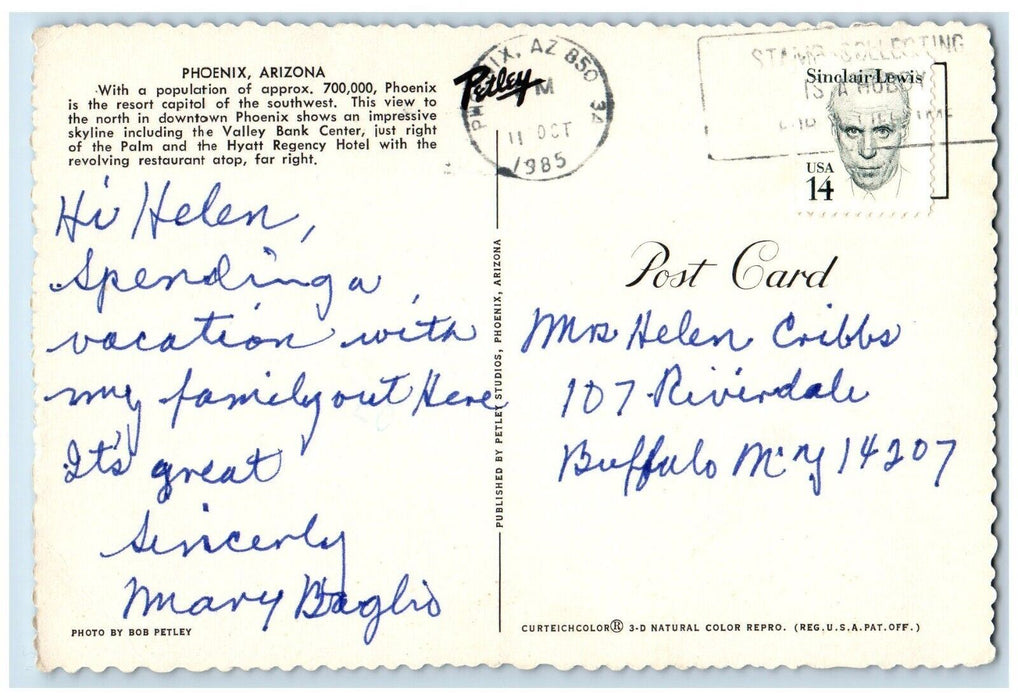 PHOENIX, ARIZONA
With a population of approx. 700,000, Phoenix
is the resort capitol of the southwest. This view to
the north in downtown Phoenix shows an impressive
skyline including the Valley Bank Center, just right
of the Palm and the Hyatt Regency Hotel with the
revolving restaurant atop, far right.
Petley
PHOENIX, AZ 850 34
M
11 OCT
1985
STAMP COLLECTING
IS A HOBBY
Sinclair Lewis
USA
14
Hi Helen,
Spending a
vacation with
my family out Here
It's great
Sincerly
Mary Baglio
PHOTO BY BOB PETLEY
PUBLISHED BY PETLEY STUDIOS, PHOENIX, ARIZONA
Post Card
Mrs Helen Cribbs
107 Riverdale
Buffalo N.Y 14207
CURTEICHCOLOR® 3-D NATURAL COLOR REPRO. (REG. U.S.A. PAT. OFF.)